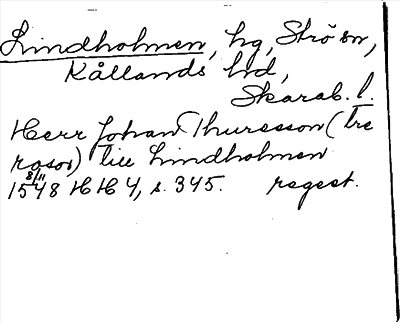 Lindholmen, hg, Strö sn,
Kållands hd,
Skarab. l.
Herr Johan Thuresson (tre
rosor) till Lindholmen
8/11
1548 HH 4, s. 345. regest.